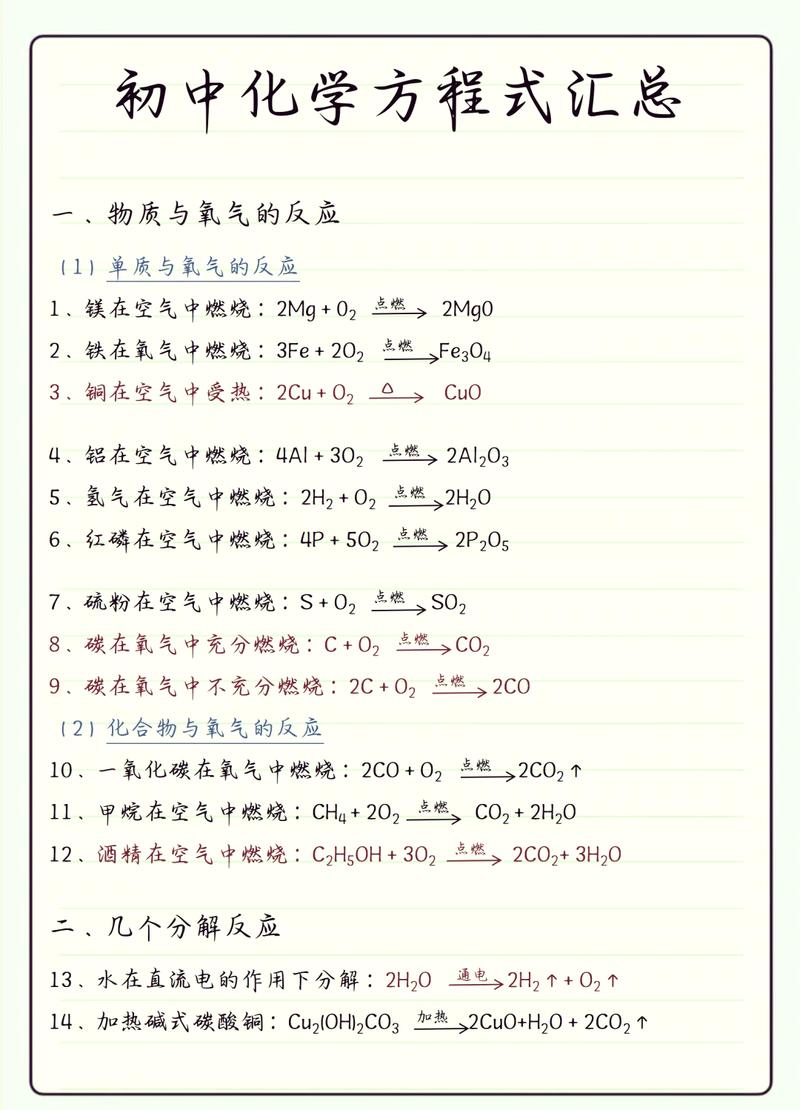 初中化学方程式汇总
一、物质与氧气的反应
(1) 单质与氧气的反应
1、镁在空气中燃烧：2Mg + O₂ 点燃→ 2MgO
2、铁在氧气中燃烧：3Fe + 2O₂ 点燃→ Fe₃O₄
3、铜在空气中受热：2Cu + O₂ △→ CuO
4、铝在空气中燃烧：4Al + 3O₂ 点燃→ 2Al₂O₃
5、氢气在空气中燃烧：2H₂ + O₂ 点燃→ 2H₂O
6、红磷在空气中燃烧：4P + 5O₂ 点燃→ 2P₂O₅
7、硫粉在空气中燃烧：S + O₂ 点燃→ SO₂
8、碳在氧气中充分燃烧：C + O₂ 点燃→ CO₂
9、碳在氧气中不充分燃烧：2C + O₂ 点燃→ 2CO
(2) 化合物与氧气的反应
10、一氧化碳在氧气中燃烧：2CO + O₂ 点燃→ 2CO₂ ↑
11、甲烷在空气中燃烧：CH₄ + 2O₂ 点燃→ CO₂ + 2H₂O
12、酒精在空气中燃烧：C₂H₅OH + 3O₂ 点燃→ 2CO₂+ 3H₂O
二、几个分解反应
13、水在直流电的作用下分解：2H₂O 通电→ 2H₂ ↑ + O₂ ↑
14、加热碱式碳酸铜：Cu₂(OH)₂CO₃ 加热→ 2CuO+H₂O + 2CO₂ ↑